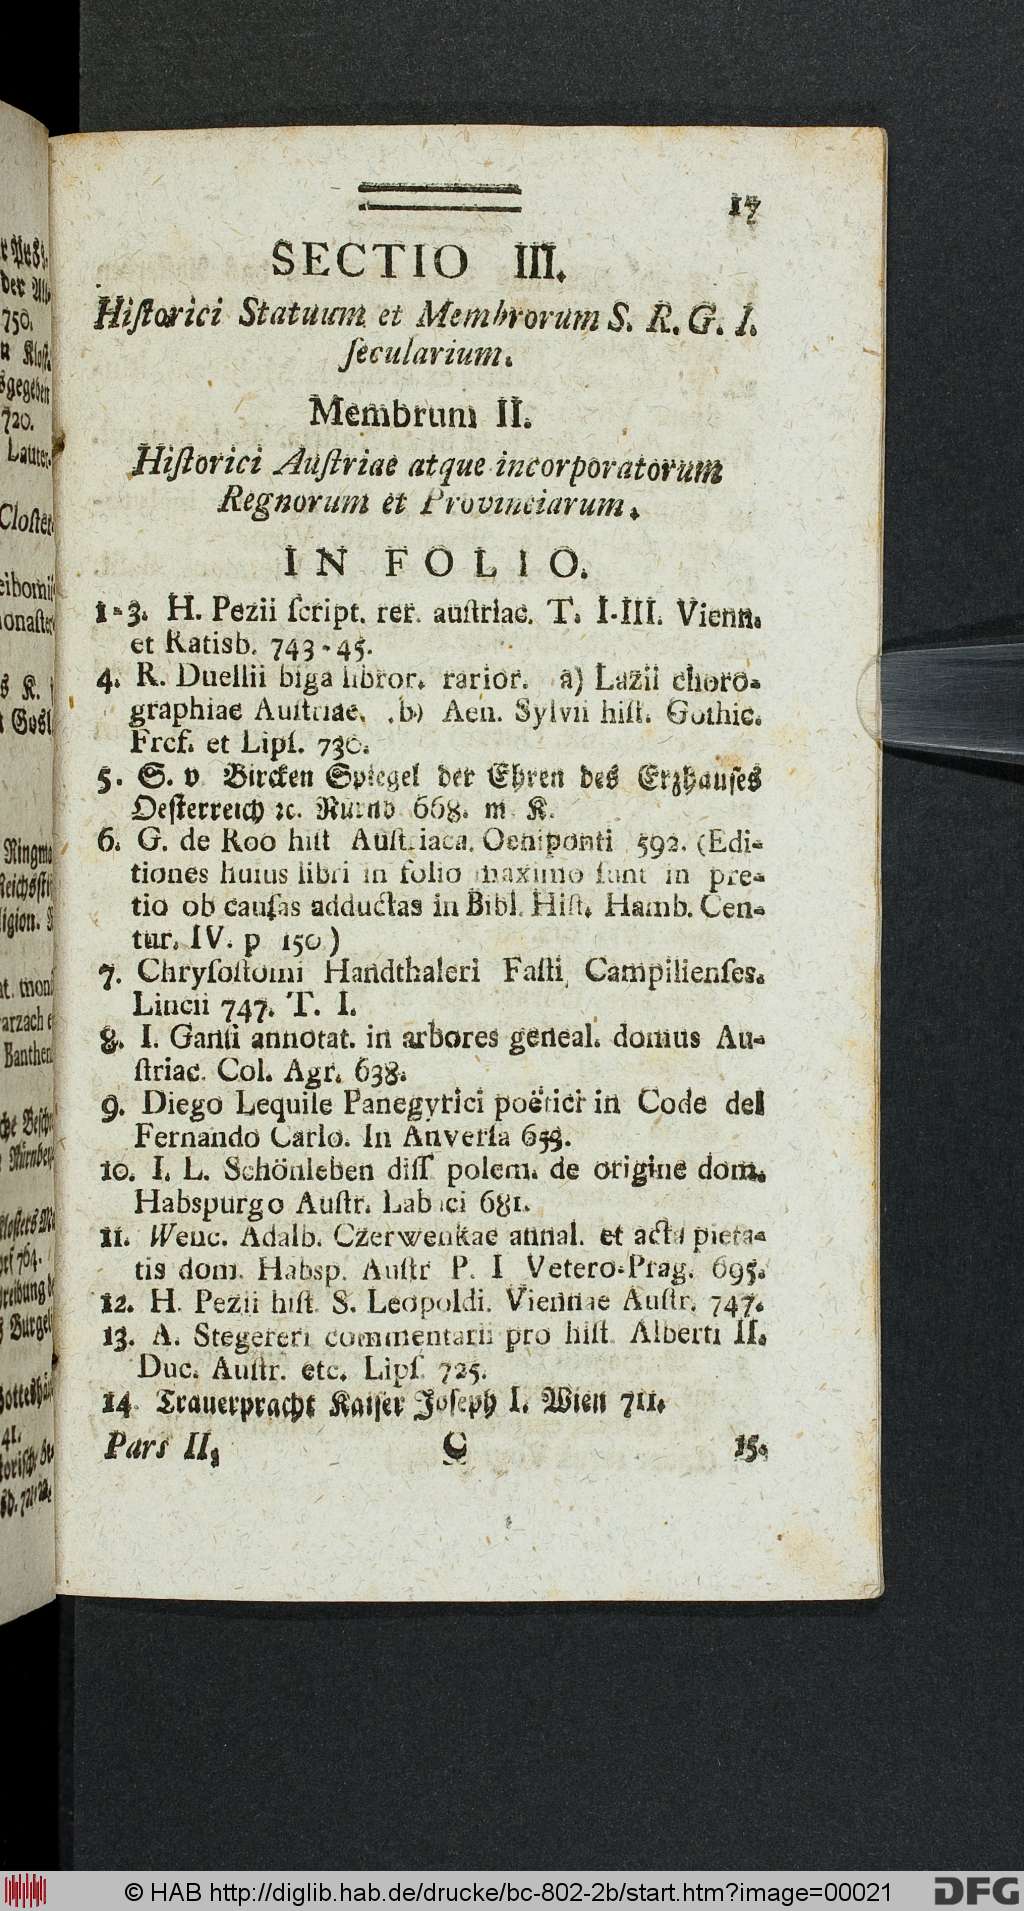 17
SECTIO III.
Hiſtorici Statuum et Membrorum S. R. G. I.
ſecularium.
Membrum II.
Hiſtorici Auſtriae atque incorporatorum
Regnorum et Provinciarum.
IN FOLIO.
1-3. H. Pezii ſcript. rer. auſtriac. T. I-III. Vienn.
et Ratisb. 743-45.
4. R. Duellii biga libror. rarior. a) Lazii choro-
graphiae Auſtriae. b) Aen. Sylvii hiſt. Gothic.
Frcf. et Lipſ. 730.
5. S. v Bircken Spiegel der Ehren des Erzhauſes
Oeſterreich ꝛc. Nurnb 668. m K.
6. G. de Roo hiſt Auſtriaca. Oeniponti 592. (Edi-
tiones huius libri in folio maximo ſunt in pre-
tio ob cauſas adductas in Bibl. Hiſt. Hamb. Cen-
tur. IV. p 150)
7. Chryſoſtomi Handthaleri Faſti Campilienſes.
Lincii 747. T. I.
8. I. Ganſi annotat. in arbores geneal. domus Au-
ſtriac. Col. Agr. 638.
9. Diego Lequile Panegyrici poëtici in Code del
Fernando Carlo. In Anverſa 659.
10. I. L. Schönleben diſſ polem. de origine dom.
Habspurgo Auſtr. Labaci 681.
11. Wenc. Adalb. Czerwenkae annal. et acta pieta-
tis dom. Habsp. Auſtr P. I Vetero-Prag. 695.
12. H. Pezii hiſt. S. Leopoldi. Viennae Auſtr. 747.
13. A. Stegereri commentarii pro hiſt. Alberti II.
Duc. Auſtr. etc. Lipſ. 725.
14. Trauerpracht Kaiſer Joſeph I. Wien 711.
Pars II. C 15.
© HAB http://diglib.hab.de/drucke/bc-802-2b/start.htm?image=00021
DFG